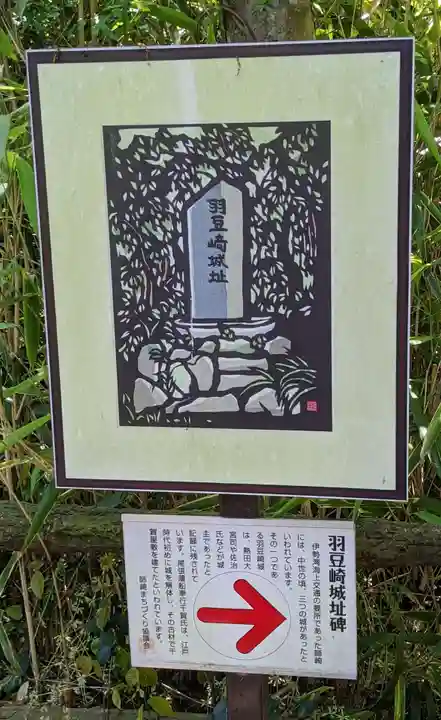 羽豆崎城址
羽豆崎城址碑
伊勢湾海上交通の要所であった師崎
には、中世の頃、三つの城があったと
いわれています。
その一つであ
る羽豆崎城
は、熱田大
宮司や佐治
氏などが城
主であったと
記録に残されて
います。尾張藩船奉行千賀氏は、江戸
時代初めに城を解体し、その古材で千
賀屋敷を建てたといわれています。
師崎まちづくり協議会